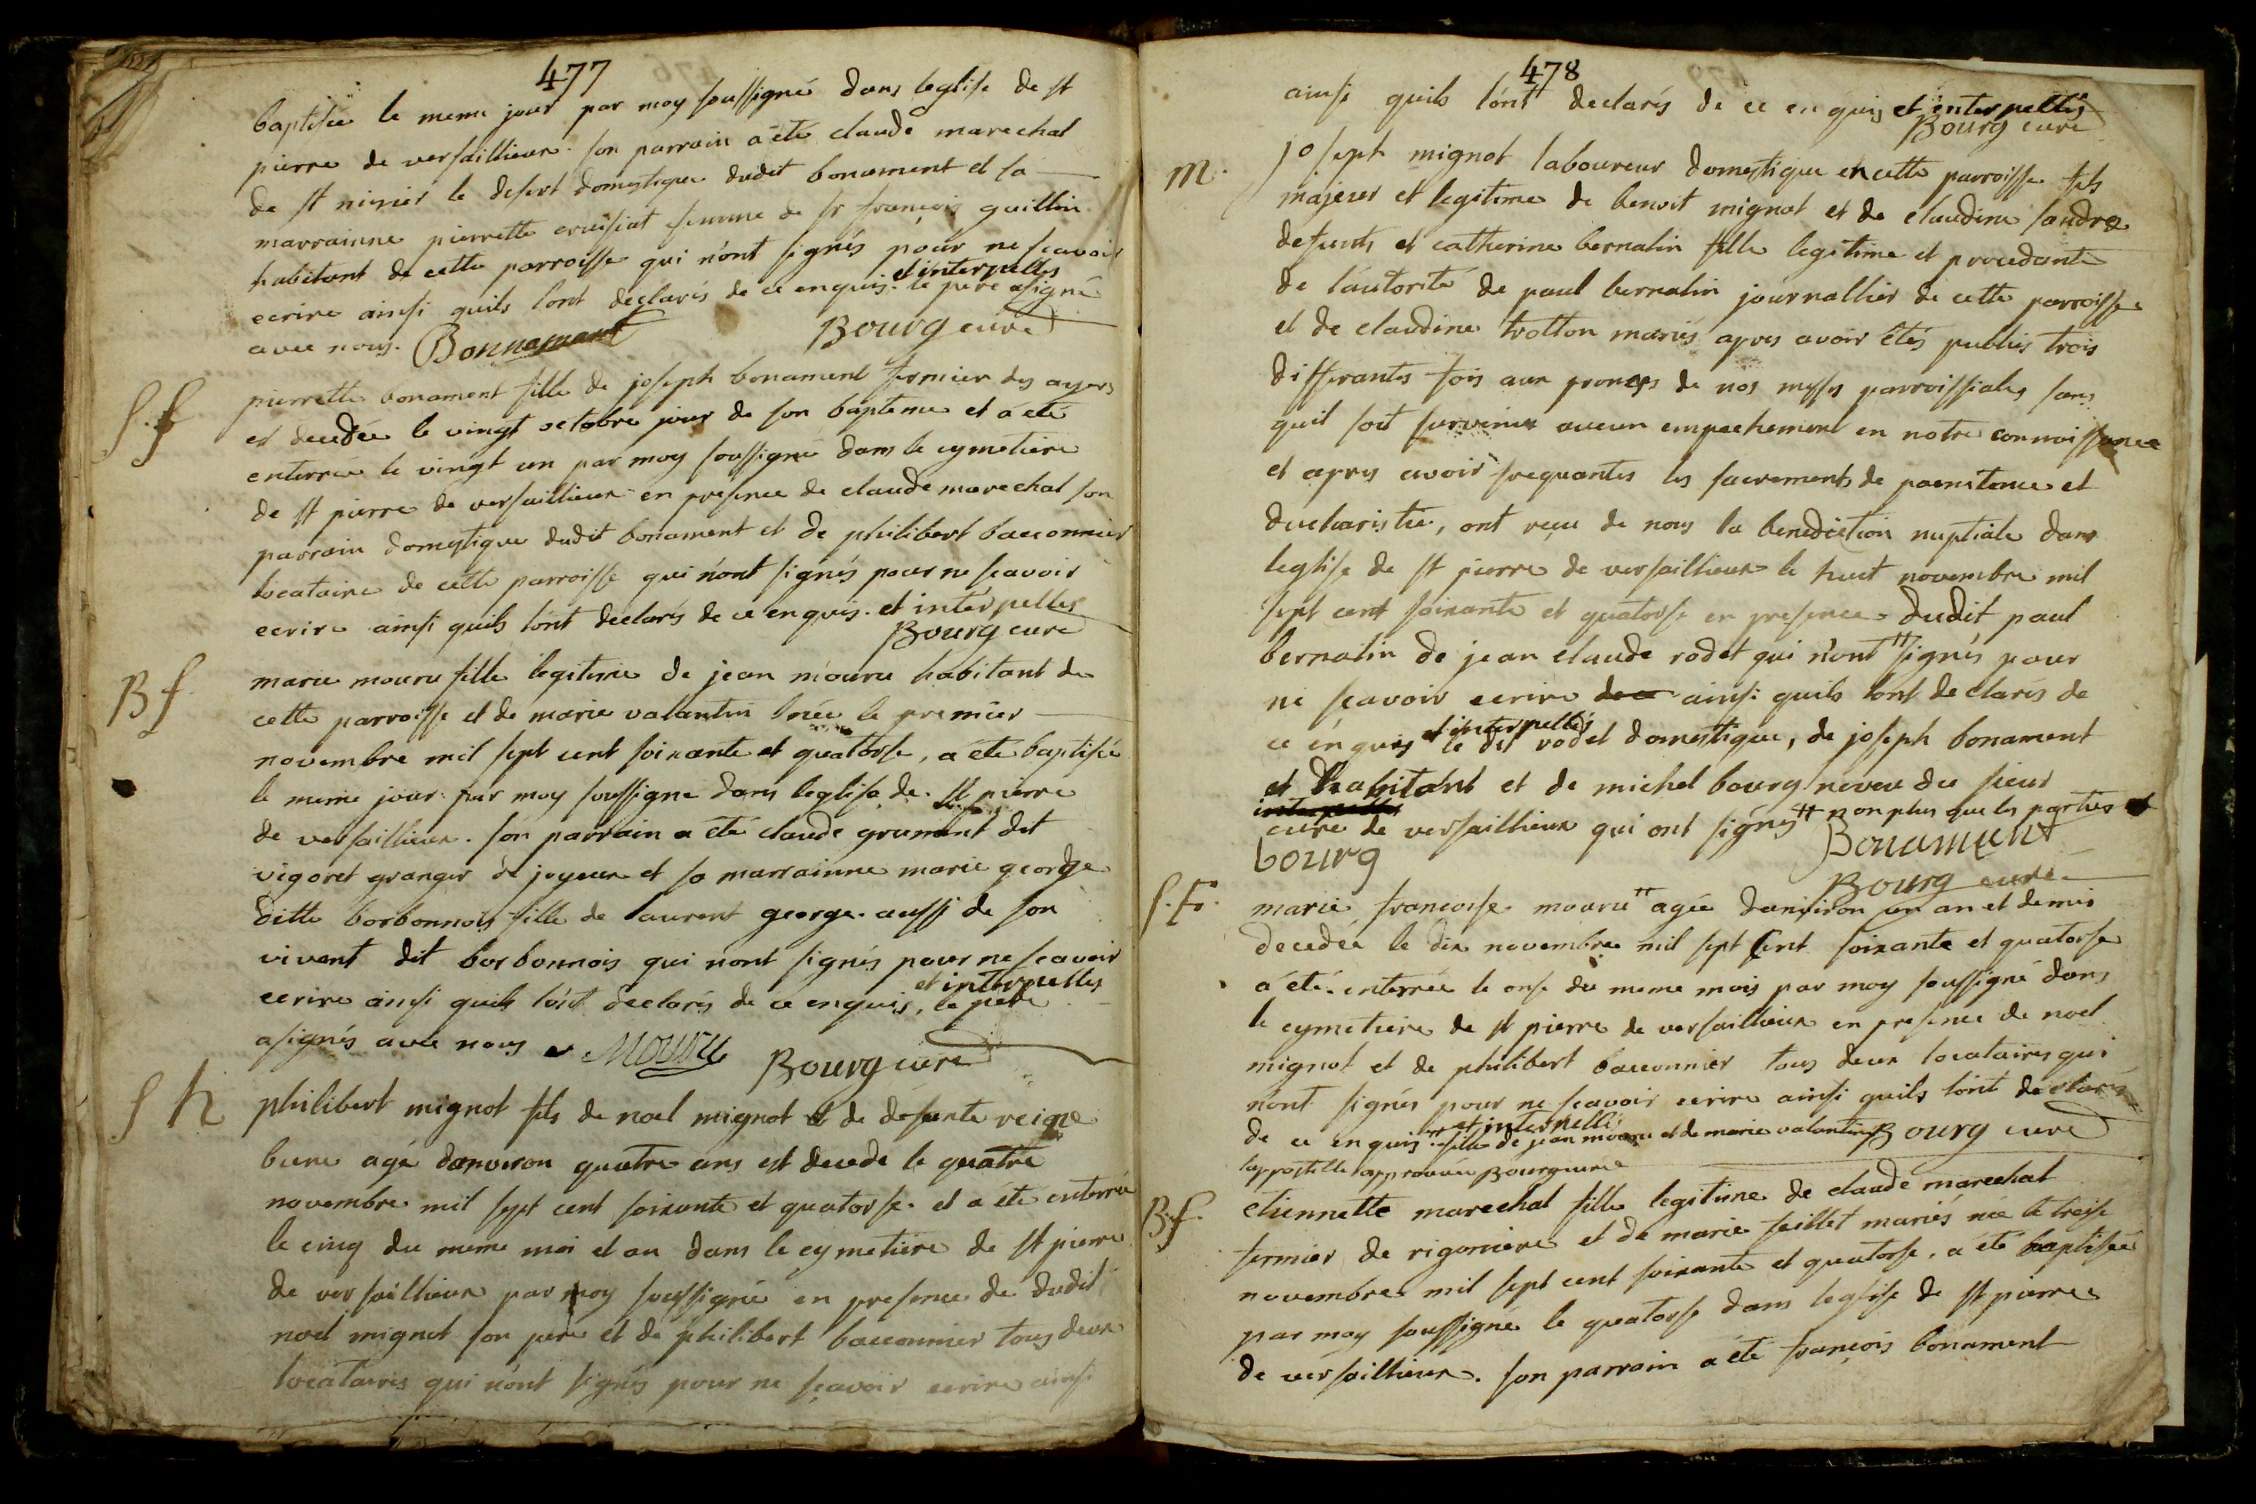 477
baptisée le meme jour par moy soussigné dans leglise de st
pierre de versaillieux. son parrain a été claude marechal
de st nizier le desert domestique dudit bonament et sa
marrainne pierrette cruisiat femme de sr françois guillin
habitant de cette parroisse qui n'ont signés pour ne scavoir
et interpelles
ecrire ainsi quils lont declarés de ce enquis. le pere a signé
avec nous. Bonnamant Bourg curé
S. f pierrette bonament fille de joseph bonament fermier des ayers
est decedée le vingt octobre jour de son bapteme et a été
enterrée le vingt un par moy soussigné dans le cymetiere
de st pierre de versaillieux en presence de claude marechal son
parrain domestique dudit bonament et de philibert bauconnier
locataire de cette parroisse qui n'ont signés pour ne scavoir
ecrire ainsi quils lont declarés de ce enquis. et interpelles
Bourg curé
B f. marie mouru fille legitime de jean mouru habitant de
cette parroisse et de marie valantin née le premier
novembre mil sept cent soixante et quatorse, a été baptisée
le meme jour par moy soussigné dans leglise de st pierre
de versaillieux. son parrain a été claude grumant dit
vigoret granger de joyeux et sa marrainne marie george
ditte borbonnois fille de laurent george aussi de son
vivant dit borbonnois qui n'ont signés pour ne scavoir
et interpelles
ecrire ainsi quils lont declarés de ce enquis, le pere
a signés avec nous Mouru Bourg curé
S h philibert mignot fils de noel mignot et de defunte reine
bune agé danviron quatre ans est decede le quatre
novembre mil sept cent soixante et quatorse. et a été enterré
le cinq du meme moi et an dans le cymetiere de st pierre
de versaillieux par moy soussigné en presence de dudit
noel mignot son pere et de philibert bauconnier tous deux
locataires qui n'ont signés pour ne scavoir ecrire ainsi
478
ainsi quils lont declarés de ce enquis et interpellés
Bourg curé
m. joseph mignot laboureur domestique en cette parroisse fils
majeur et legitime de benoit mignot et de claudine landre
defunts et catherine bernalin fille legitime et procedante
de lautorité de paul bernalin journallier de cette parroisse
et de claudine trotton mariés apres avoir étés publiés trois
differantes fois aux prones de nos messes parroissiales sans
quil soit survenu aucun empechement en notre connoissance
et apres avoir frequantés les sacrements de poenitence et
deucharistie, ont reçu de nous la benediction nuptiale dans
leglise de st pierre de versaillieux le huit novembre mil
sept cent soixante et quatorse en presence dudit paul
bernalin de jean claude rodet qui n'ont # signés pour
ne scavoir ecrire ainsi quils lont declarés de
et interpellés
ce enquis le dit rodet domestique, de joseph bonament
et habitant et de michel bourg neveu du sieur
curé de versaillieux qui ont signés # non plus que les parties
bourg Bonament
Bourg curé
S. f. marie francoise mouru # agée danviron un an et demis
decedée le dix novembre mil sept cent soixante et quatorse
a été enterrée le onse du meme mois par moy soussigné dans
le cymetiere de st pierre de versaillieux en presence de noel
mignot et de philibert bauconnier tous deux locataires qui
n'ont signés pour ne scavoir ecrire ainsi quils lont declarés
et interpellés
de ce enquis. # fille de jean mouru et de marie valantin Bourg curé
lappostille approuvée Bourg curé
B. f. etiennette marechal fille legitime de claude marechal
fermier de rigoniere et de marie feillet mariés née le treise
novembre mil sept cent soixante et quatorse. a été baptisée
par moy soussigné le quatorse dans leglise de st pierre
de versaillieux. son parrain a été françois bonament